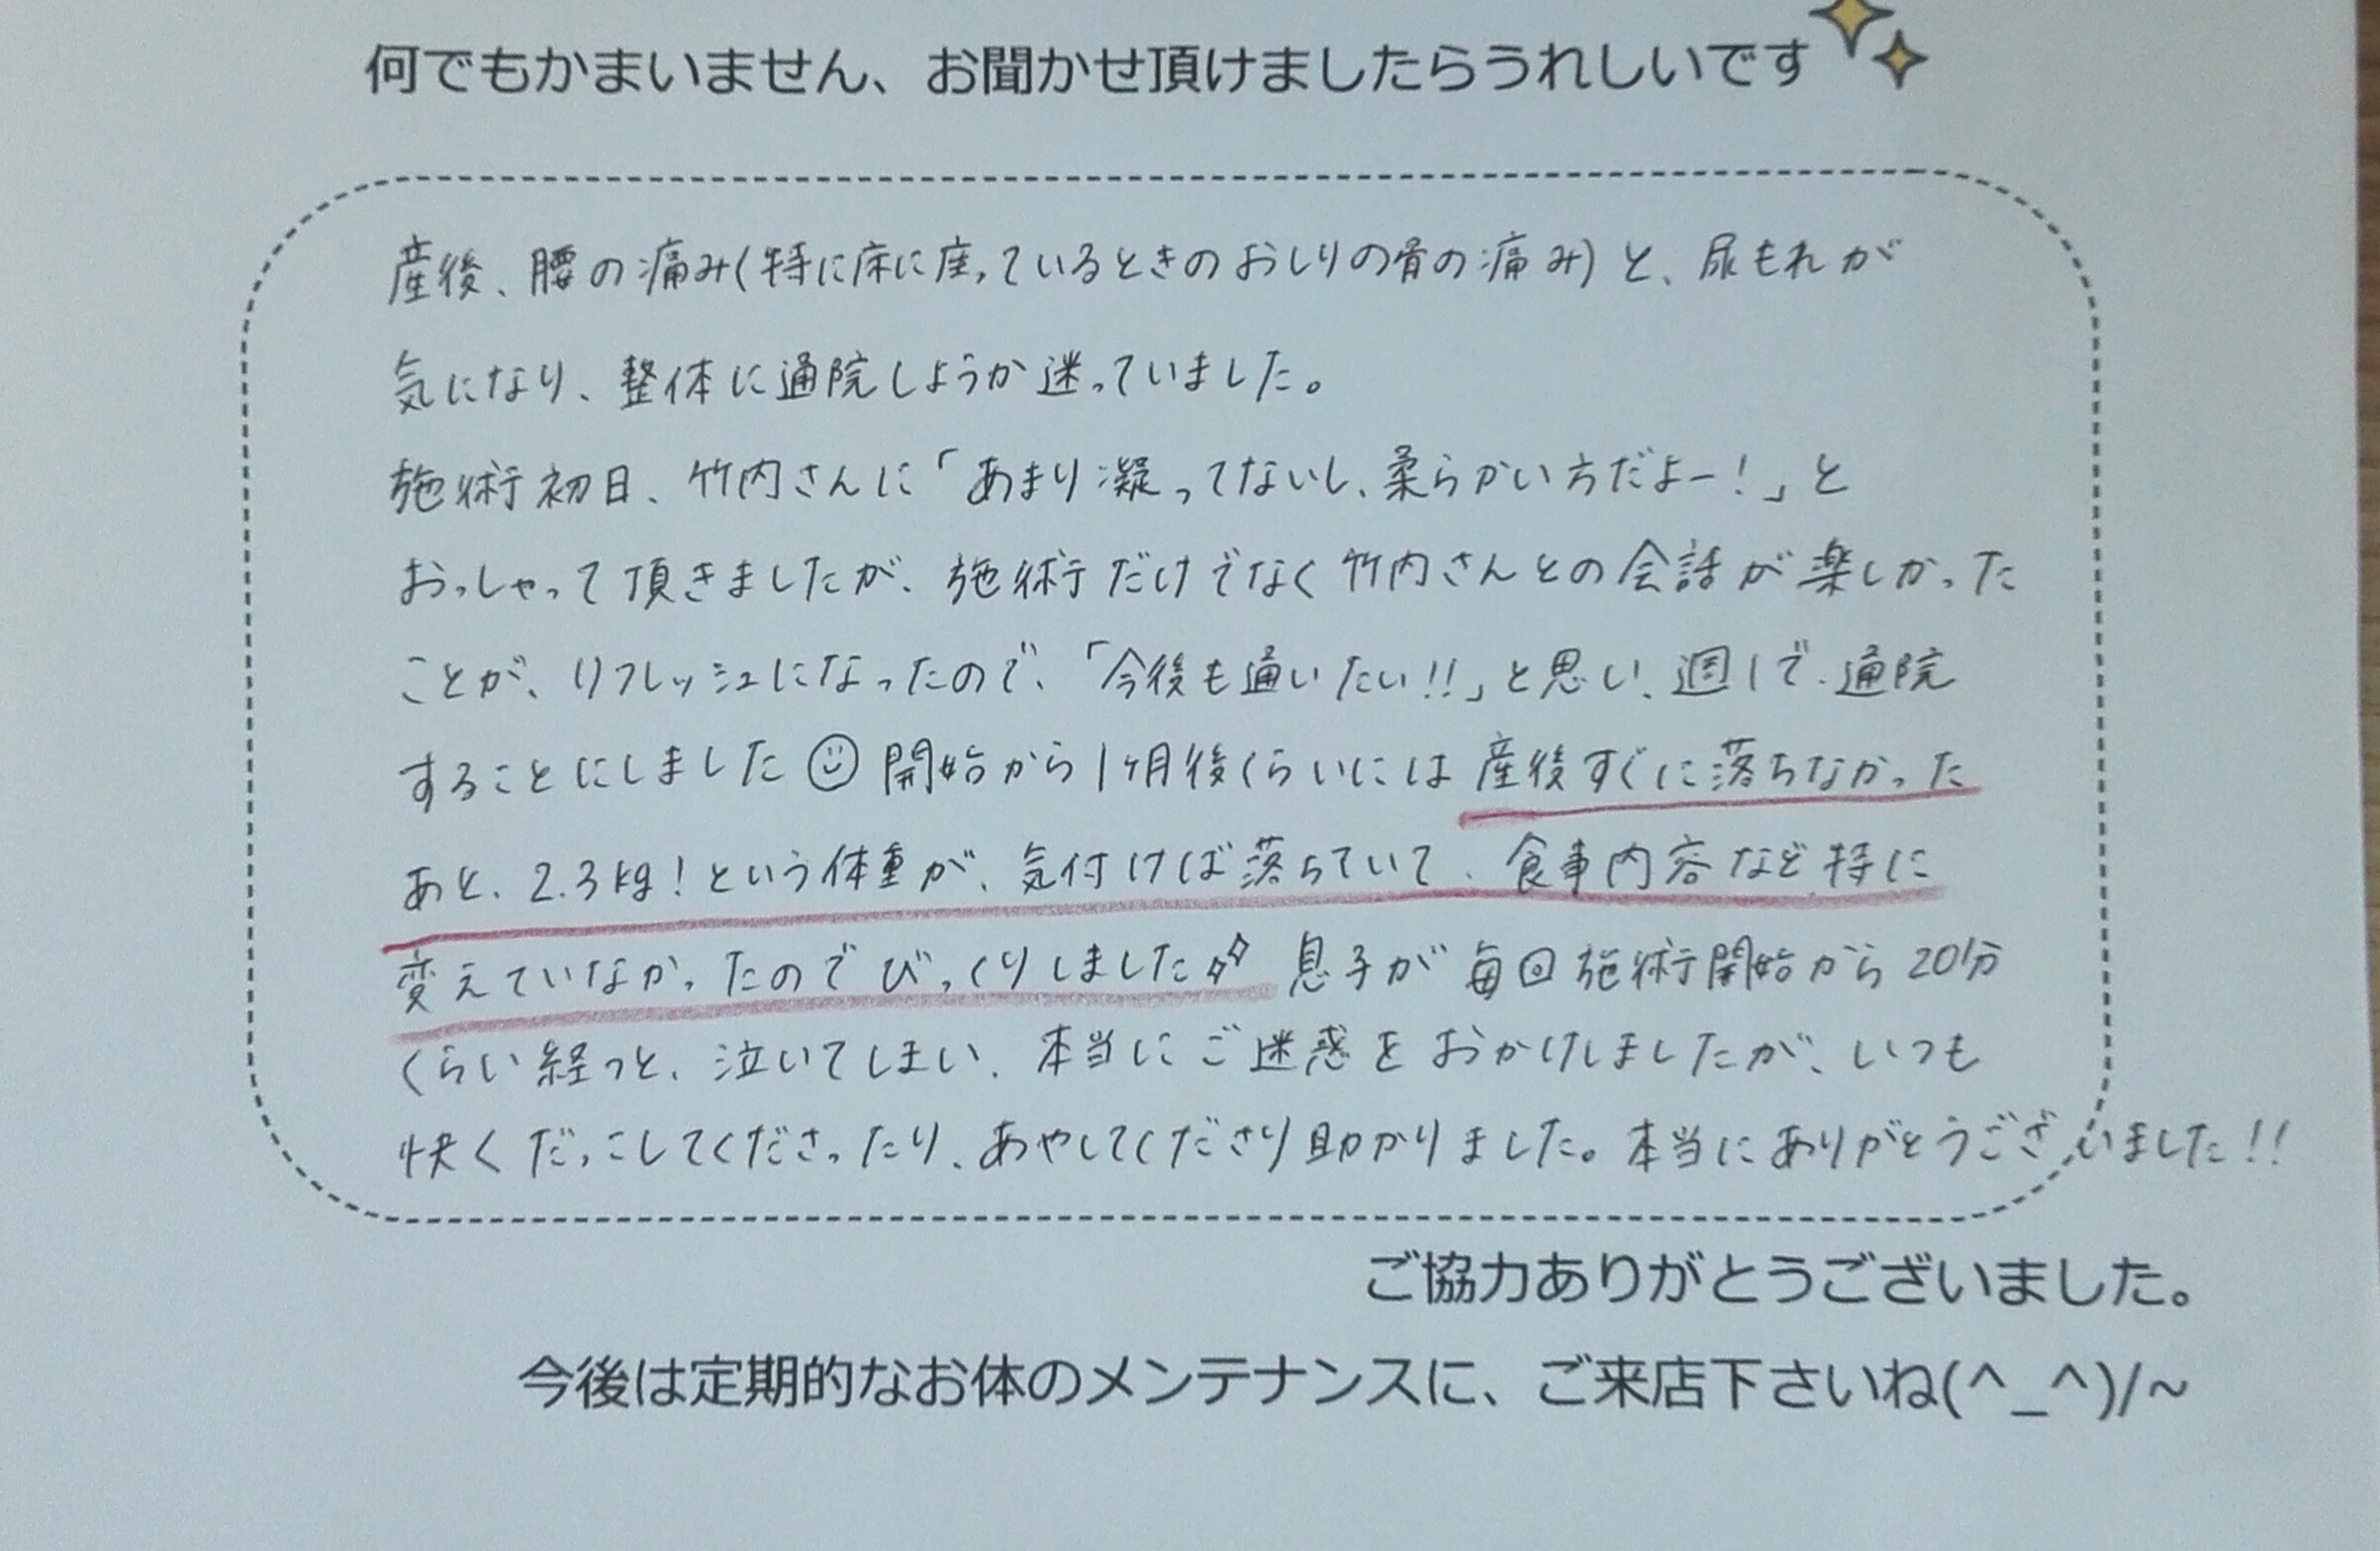 何でもかまいません、お聞かせ頂けましたらうれしいです
産後、腰の痛み(特に床に座っているときのおしりの骨の痛み)と、尿もれが
気になり、整体に通院しようか迷っていました。
施術初日、竹内さんに「あまり凝ってないし、柔らかい方だよー!」と
おっしゃって頂きましたが、施術だけでなく竹内さんとの会話が楽しかった
ことが、リフレッシュになったので、「今後も通いたい!!」と思い、週1で通院
することにしました☺開始から1ヶ月後くらいには産後すぐに落ちなかった
あと、2.3kg!という体重が、気付けば落ちていて、食事内容など特に
変えていなかったのでびっくりしました 息子が毎回施術開始から20分
くらい経つと、泣いてしまい、本当にご迷惑をおかけしましたが、いつも
快くだっこしてくださったり、あやしてくださり助かりました。本当にありがとうございました!!
ご協力ありがとうございました。
今後は定期的なお体のメンテナンスに、ご来店下さいね(^_^)/~